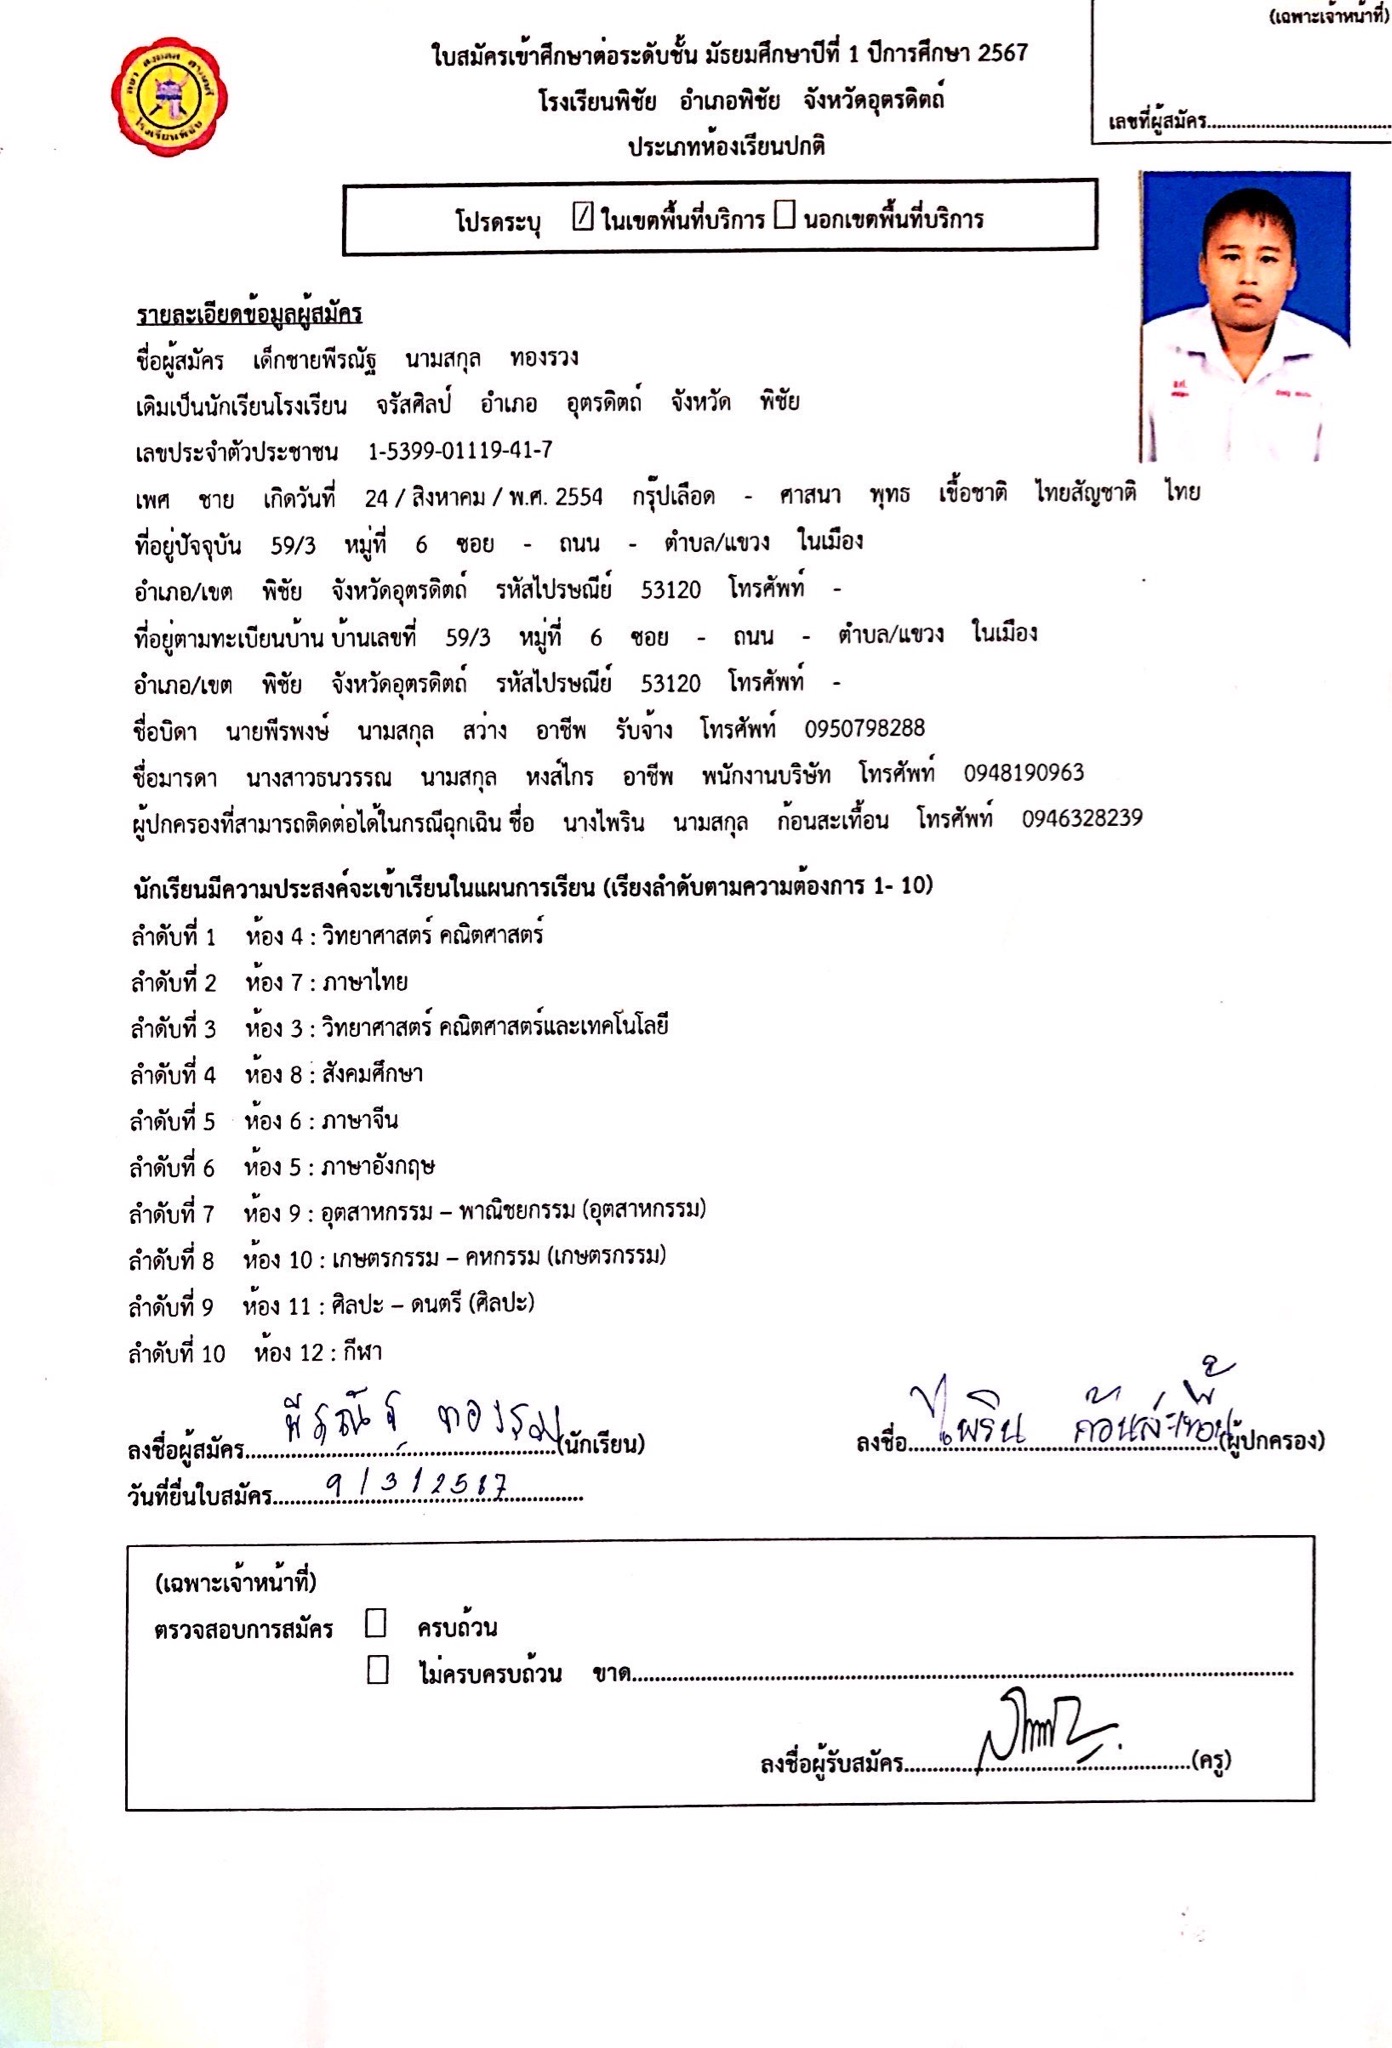 (เฉพาะเจ้าหน้าที่)
ใบสมัครเข้าศึกษาต่อระดับชั้น มัธยมศึกษาปีที่ 1 ปีการศึกษา 2567
โรงเรียนพิชัย อำเภอพิชัย จังหวัดอุตรดิตถ์
เลขที่ผู้สมัคร
ประเภทห้องเรียนปกติ
โรงเรียนพิชัย
โปรดระบุ / ในเขตพื้นที่บริการ นอกเขตพื้นที่บริการ
รายละเอียดข้อมูลผู้สมัคร
ชื่อผู้สมัคร เด็กชายพีรณัฐ นามสกุล ทองรวง
เดิมเป็นนักเรียนโรงเรียน จรัสศิลป์ อำเภอ อุตรดิตถ์ จังหวัด พิชัย
เลขประจำตัวประชาชน 1-5399-01119-41-7
เพศ ชาย เกิดวันที่ 24 / สิงหาคม / พ.ศ. 2554 กรุ๊ปเลือด - ศาสนา พุทธ เชื้อชาติ ไทยสัญชาติ ไทย
ที่อยู่ปัจจุบัน 59/3 หมู่ที่ 6 ซอย - ถนน - ตำบล/แขวง ในเมือง
อำเภอ/เขต พิชัย จังหวัดอุตรดิตถ์ รหัสไปรษณีย์ 53120 โทรศัพท์ -
ที่อยู่ตามทะเบียนบ้าน บ้านเลขที่ 59/3 หมู่ที่ 6 ซอย - ถนน - ตำบล/แขวง ในเมือง
อำเภอ/เขต พิชัย จังหวัดอุตรดิตถ์ รหัสไปรษณีย์ 53120 โทรศัพท์ -
ชื่อบิดา นายพีรพงษ์ นามสกุล สว่าง อาชีพ รับจ้าง โทรศัพท์ 0950798288
ชื่อมารดา นางสาวธนวรรณ นามสกุล หงส์ไกร อาชีพ พนักงานบริษัท โทรศัพท์ 0948190963
ผู้ปกครองที่สามารถติดต่อได้ในกรณีฉุกเฉิน ชื่อ นางไพริน นามสกุล ก้อนสะเทื้อน โทรศัพท์ 0946328239
นักเรียนมีความประสงค์จะเข้าเรียนในแผนการเรียน (เรียงลำดับตามความต้องการ 1- 10)
ลำดับที่ 1 ห้อง 4 : วิทยาศาสตร์ คณิตศาสตร์
ลำดับที่ 2 ห้อง 7 : ภาษาไทย
ลำดับที่ 3 ห้อง 3 : วิทยาศาสตร์ คณิตศาสตร์และเทคโนโลยี
ลำดับที่ 4 ห้อง 8 : สังคมศึกษา
ลำดับที่ 5 ห้อง 6 : ภาษาจีน
ลำดับที่ 6 ห้อง 5 : ภาษาอังกฤษ
ลำดับที่ 7 ห้อง 9 : อุตสาหกรรม – พาณิชยกรรม (อุตสาหกรรม)
ลำดับที่ 8 ห้อง 10 : เกษตรกรรม – คหกรรม (เกษตรกรรม)
ลำดับที่ 9 ห้อง 11 : ศิลปะ – ดนตรี (ศิลปะ)
ลำดับที่ 10 ห้อง 12 : กีฬา
ลงชื่อผู้สมัคร พีรณัฐ ทองรวง (นักเรียน) ลงชื่อ ไพริน ก้อนสะเทื้อน (ผู้ปกครอง)
วันที่ยื่นใบสมัคร 9/3/2567
(เฉพาะเจ้าหน้าที่)
ตรวจสอบการสมัคร ครบถ้วน
ไม่ครบครบถ้วน ขาด
ลงชื่อผู้รับสมัคร (ครู)